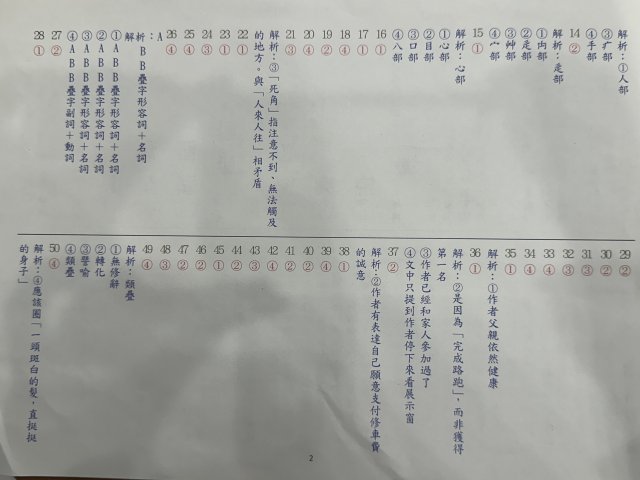 解析：①人部
③疒部
④手部
14 ②
解析：辵部
①內部
②辵部
③艸部
④宀部
15 ①
解析：心部
①心部
②目部
③口部
④八部
16 ①
17 ①
18 ④
19 ②
20 ④
21 ③
解析：③「死角」指注意不到、無法觸及
的地方。與「人來人往」相矛盾
22 ①
23 ①
24 ③
25 ④
26 ④
解析：A
BB疊字形容詞＋名詞
①ABB疊字形容詞＋名詞
②ABB疊字形容詞＋名詞
③ABB疊字形容詞＋名詞
④ABB疊字副詞＋動詞
27 ②
28 ①
29 ②
30 ②
31 ②
32 ③
33 ③
34 ④
35 ①
解析：①作者父親依然健康
36 ①
解析：②是因為「完成路跑」，而非獲得
第一名
③作者已經和家人參加過了
④文中只提到作者停下來看展示窗
37 ②
解析：②作者有表達自己願意支付修車費
的誠意
38 ①
39 ④
40 ②
41 ②
42 ④
43 ③
44 ②
45 ①
46 ②
47 ②
48 ③
49 ④
解析：類疊
①無修辭
②轉化
③譬喻
④類疊
50 ④
解析：④應該圈「一頭斑白的髮，直挺挺
的身子」
2